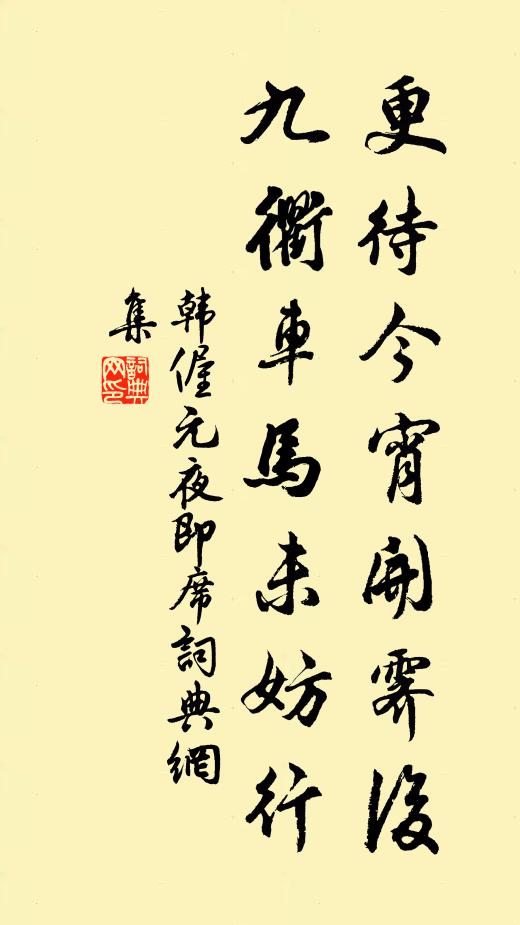 更待今宵開霽後
九衢車馬未妨行
韩偓元夜即席詞典網
集
詞典
网印